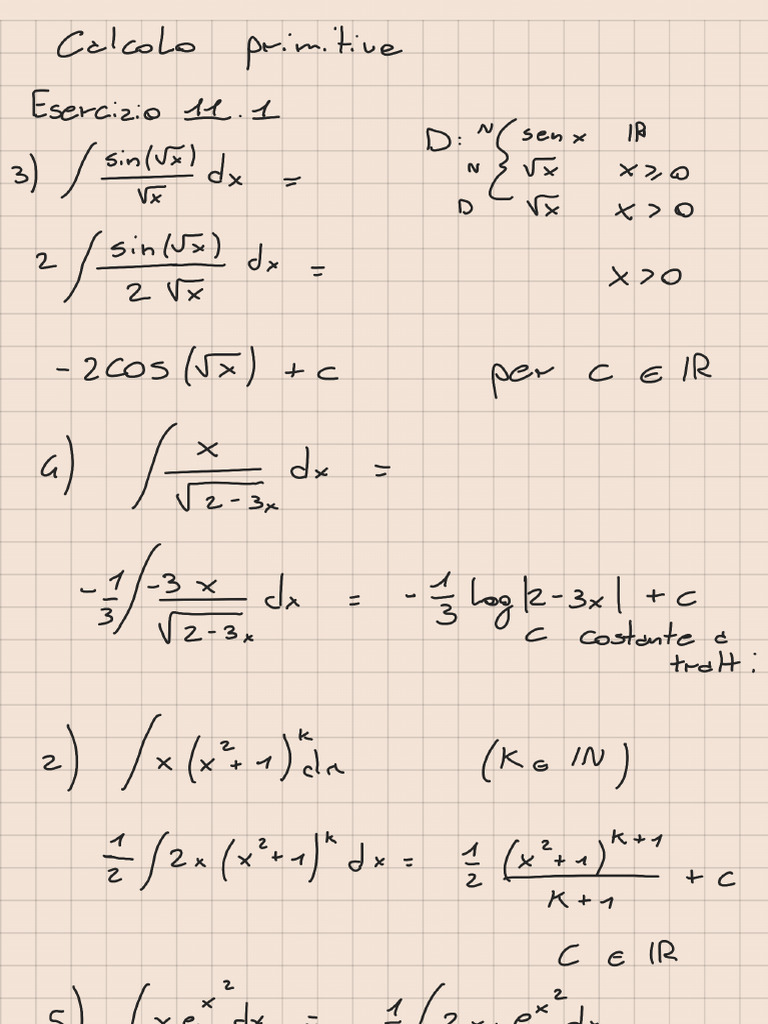 Calcolo primitive
Esercizio 11.1
3) ∫ sin(√x)/√x dx =
D: N { sen x IR
N √x x ⩾ 0
D √x x > 0
2 ∫ sin(√x)/2√x dx =
x > 0
-2cos(√x) + c per C ∈ IR
4) ∫ x/√2-3x dx =
-1/3 ∫ -3x/√2-3x dx = -1/3 log|2-3x| + c
C costante a
tratti
2) ∫ x(x²+1)^k dx (K ∈ IN)
1/2 ∫ 2x(x²+1)^k dx = 1/2 (x²+1)^K+1/K+1 + c
C ∈ IR
5) ∫ x e^x² dx = 1/2 ∫ 2x · e^x² dx